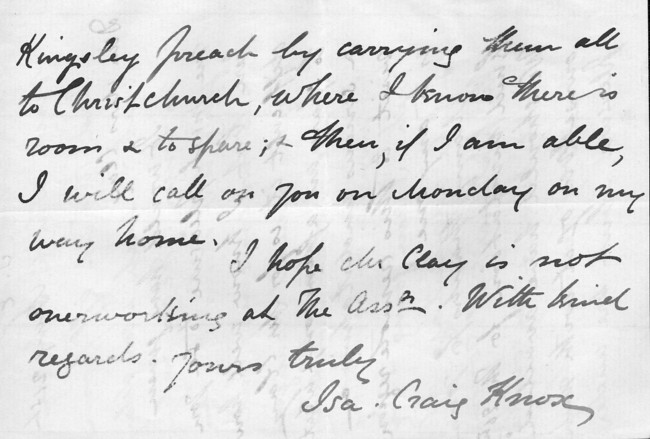 Kingsley preach by carrying them all
to Christchurch, where I know there is
room & to spare; & then, if I am able,
I will call on you on Monday on my
way home.
I hope Mr Clay is not
overworking at The Assn. With kind
regards. Yours truly
Isa. Craig Knox